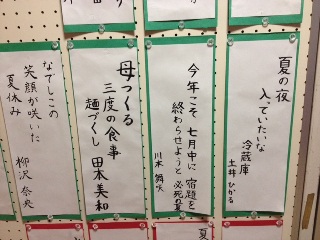 夏の夜
入っていたいな
冷蔵庫
土井ひかる
今年こそ 七月中に 宿題を
終わらせようと 必死の夏
川木 舞咲
母つくる
三度の食事
麺づくし 田本美和
なでしこの
笑顔が咲いた
夏休み 柳沢奈央
夏